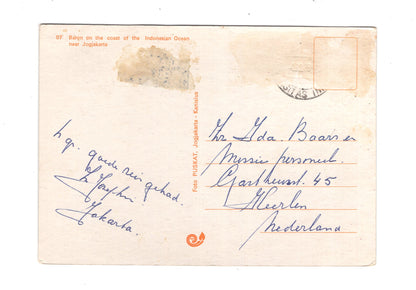 97 Baron on the coast of the Indonesian Ocean
near Jogjakarta
Foto PUSKAT, Jogjakarta - Kanisius
h. gr. goede reis gehad.
Jakarta.
Zr. Ida Baars en
Missie personeel.
Gasthuisst. 45
Heerlen
Nederland